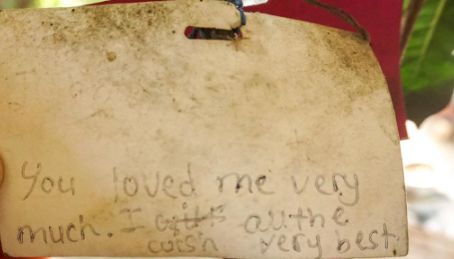 You loved me very
much. I all the
cuisn very best